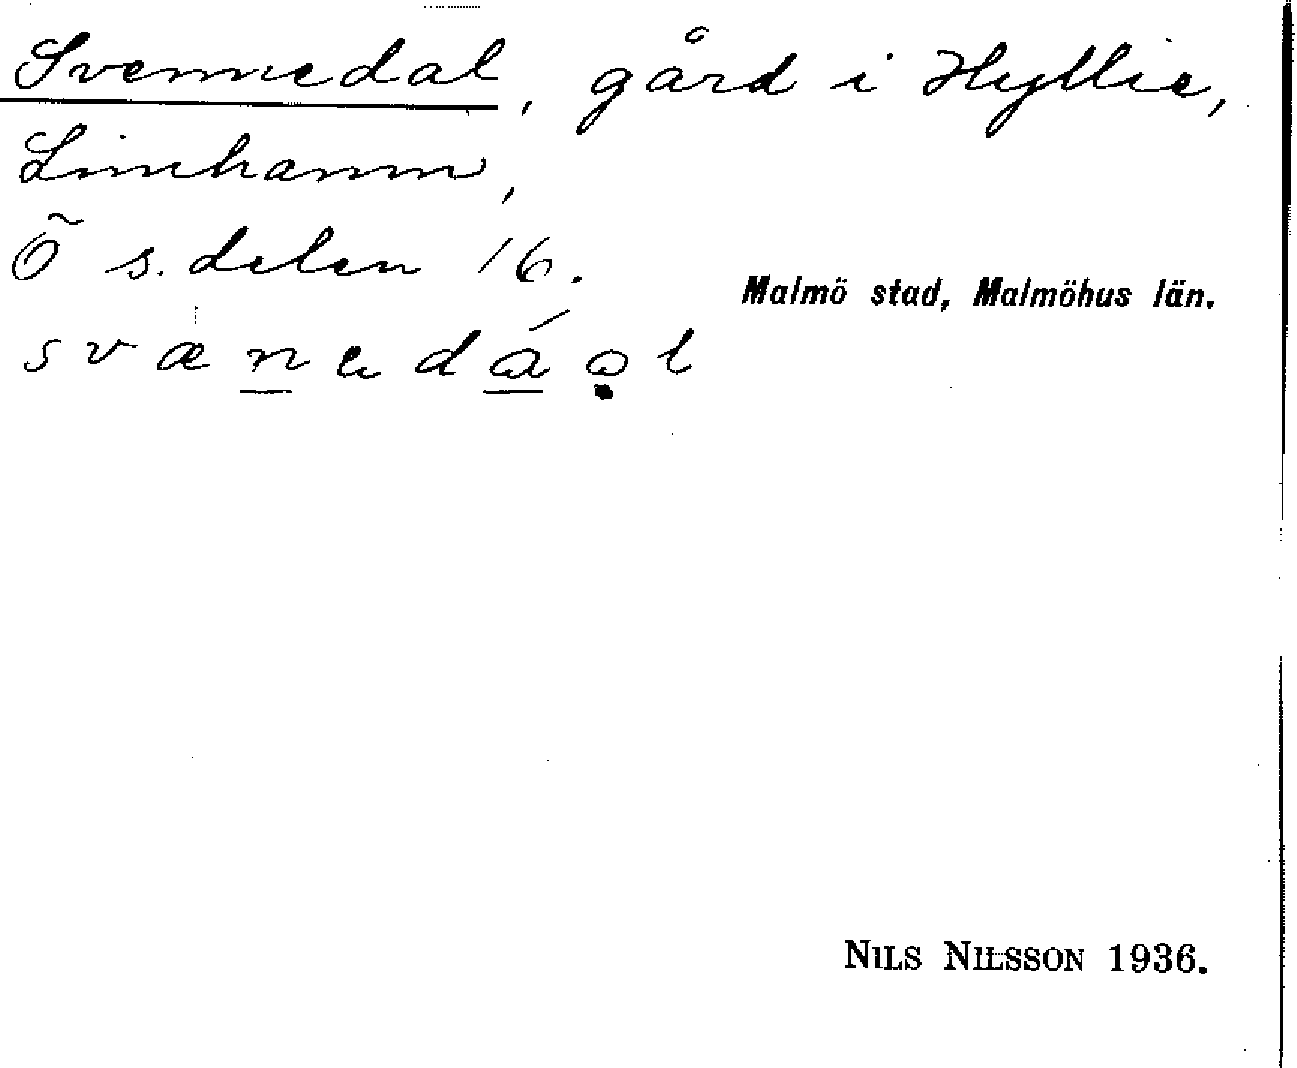 Svennedal, gård i Hyllie,
Limhamn,
Õ s. delen 16.
Malmö stad, Malmöhus län.
svænedáol
NILS NILSSON 1936.